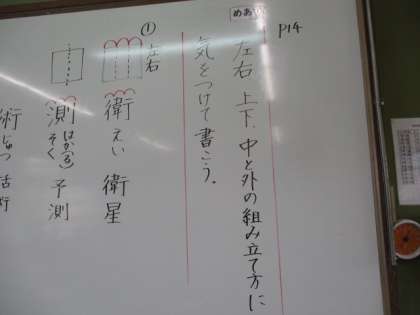 P14
めあて
左右 上下、中と外の組み立て方に
気をつけて書こう。
① 左右
衛 えい 衛星
測 はかる そく 予測
術 じゅつ 話術